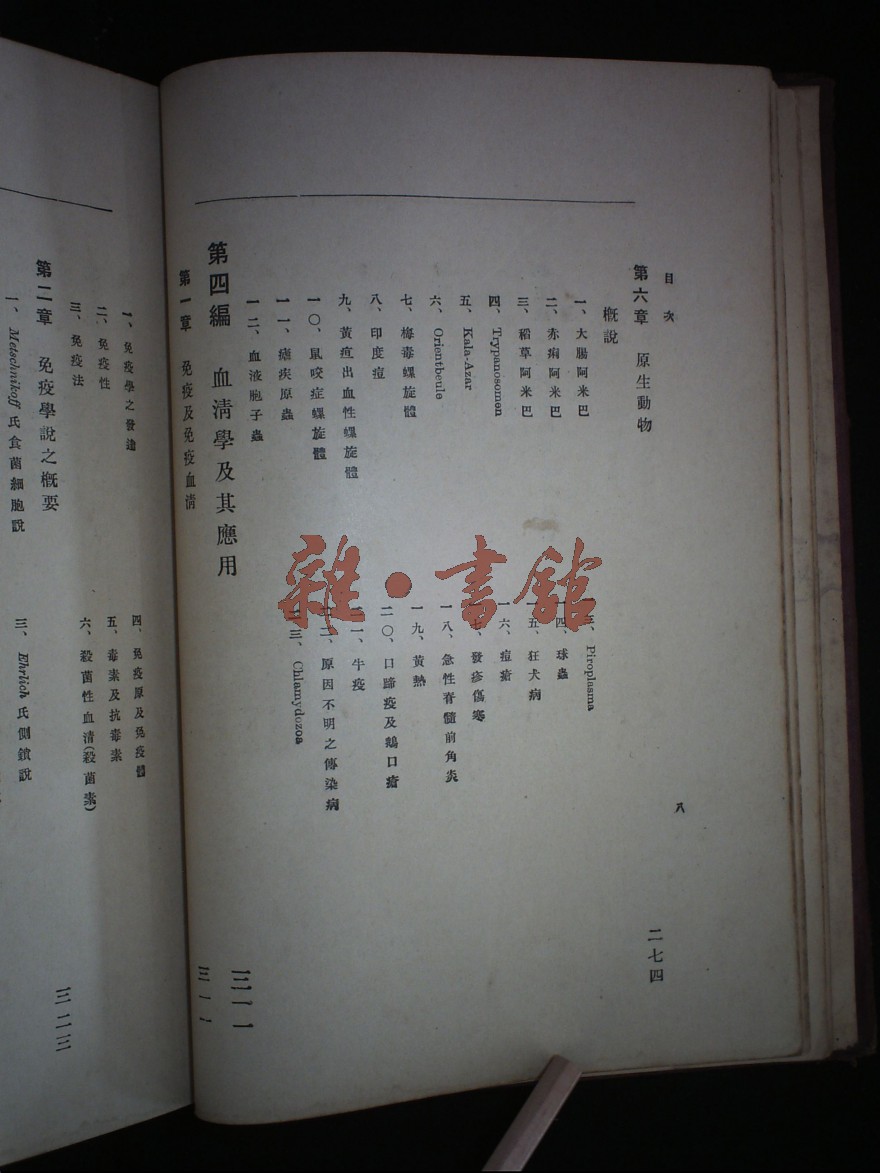 目次
八
第六章 原生動物 二七四
概說
一、大腸阿米巴
二、赤痢阿米巴
三、稻草阿米巴
四、Trypanosomen
五、Kala-Azar
六、Orientbeule
七、梅毒螺旋體
八、印度痘
九、黃疸出血性螺旋體
一〇、鼠咬症螺旋體
一一、瘧疾原蟲
一二、血液胞子蟲
一三、Piroplasma
一四、球蟲
一五、狂犬病
一六、痘瘡
一七、發疹傷寒
一八、急性脊髓前角炎
一九、黃熱
二〇、口蹄疫及鵝口瘡
二一、牛疫
二二、原因不明之傳染病
二三、Chlamydozoa
第四編 血清學及其應用 三一一
第一章 免疫及免疫血清 三一一
一、免疫學之發達
二、免疫性
三、免疫法
四、免疫原及免疫體
五、毒素及抗毒素
六、殺菌性血清(殺菌素)
第二章 免疫學說之概要 三二三
一、Metschnikoff氏食菌細胞說
三、Ehrlich氏側鎖說
雜·書館